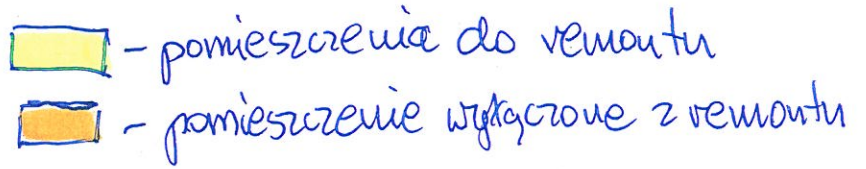 - pomieszczenia do remontu
- pomieszczenie wyłączone z remontu